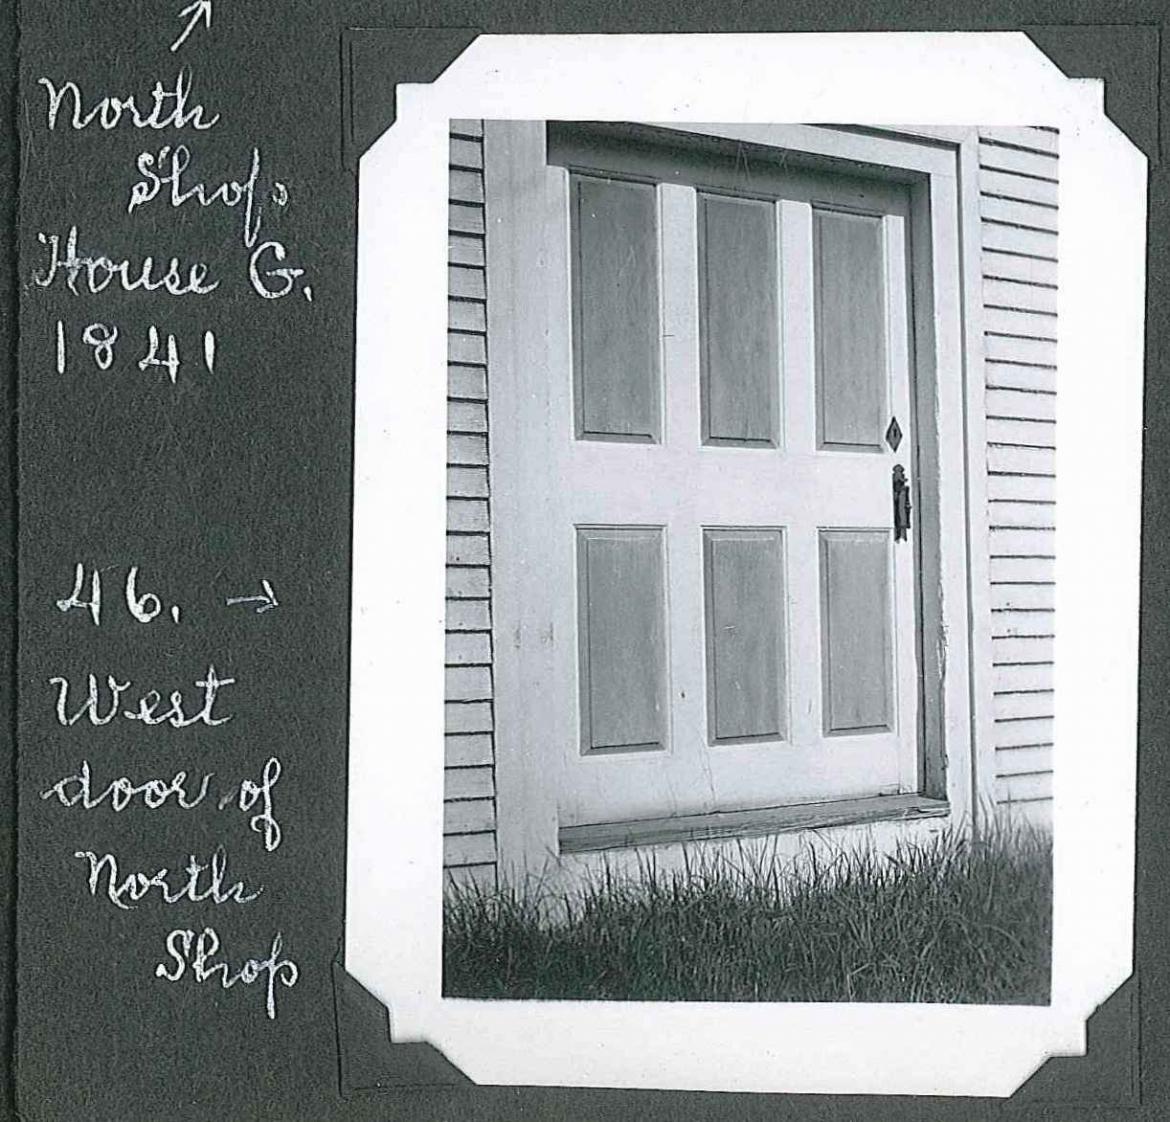 ↗
North
Shop
House G.
1841
46. →
West
door of
North
Shop